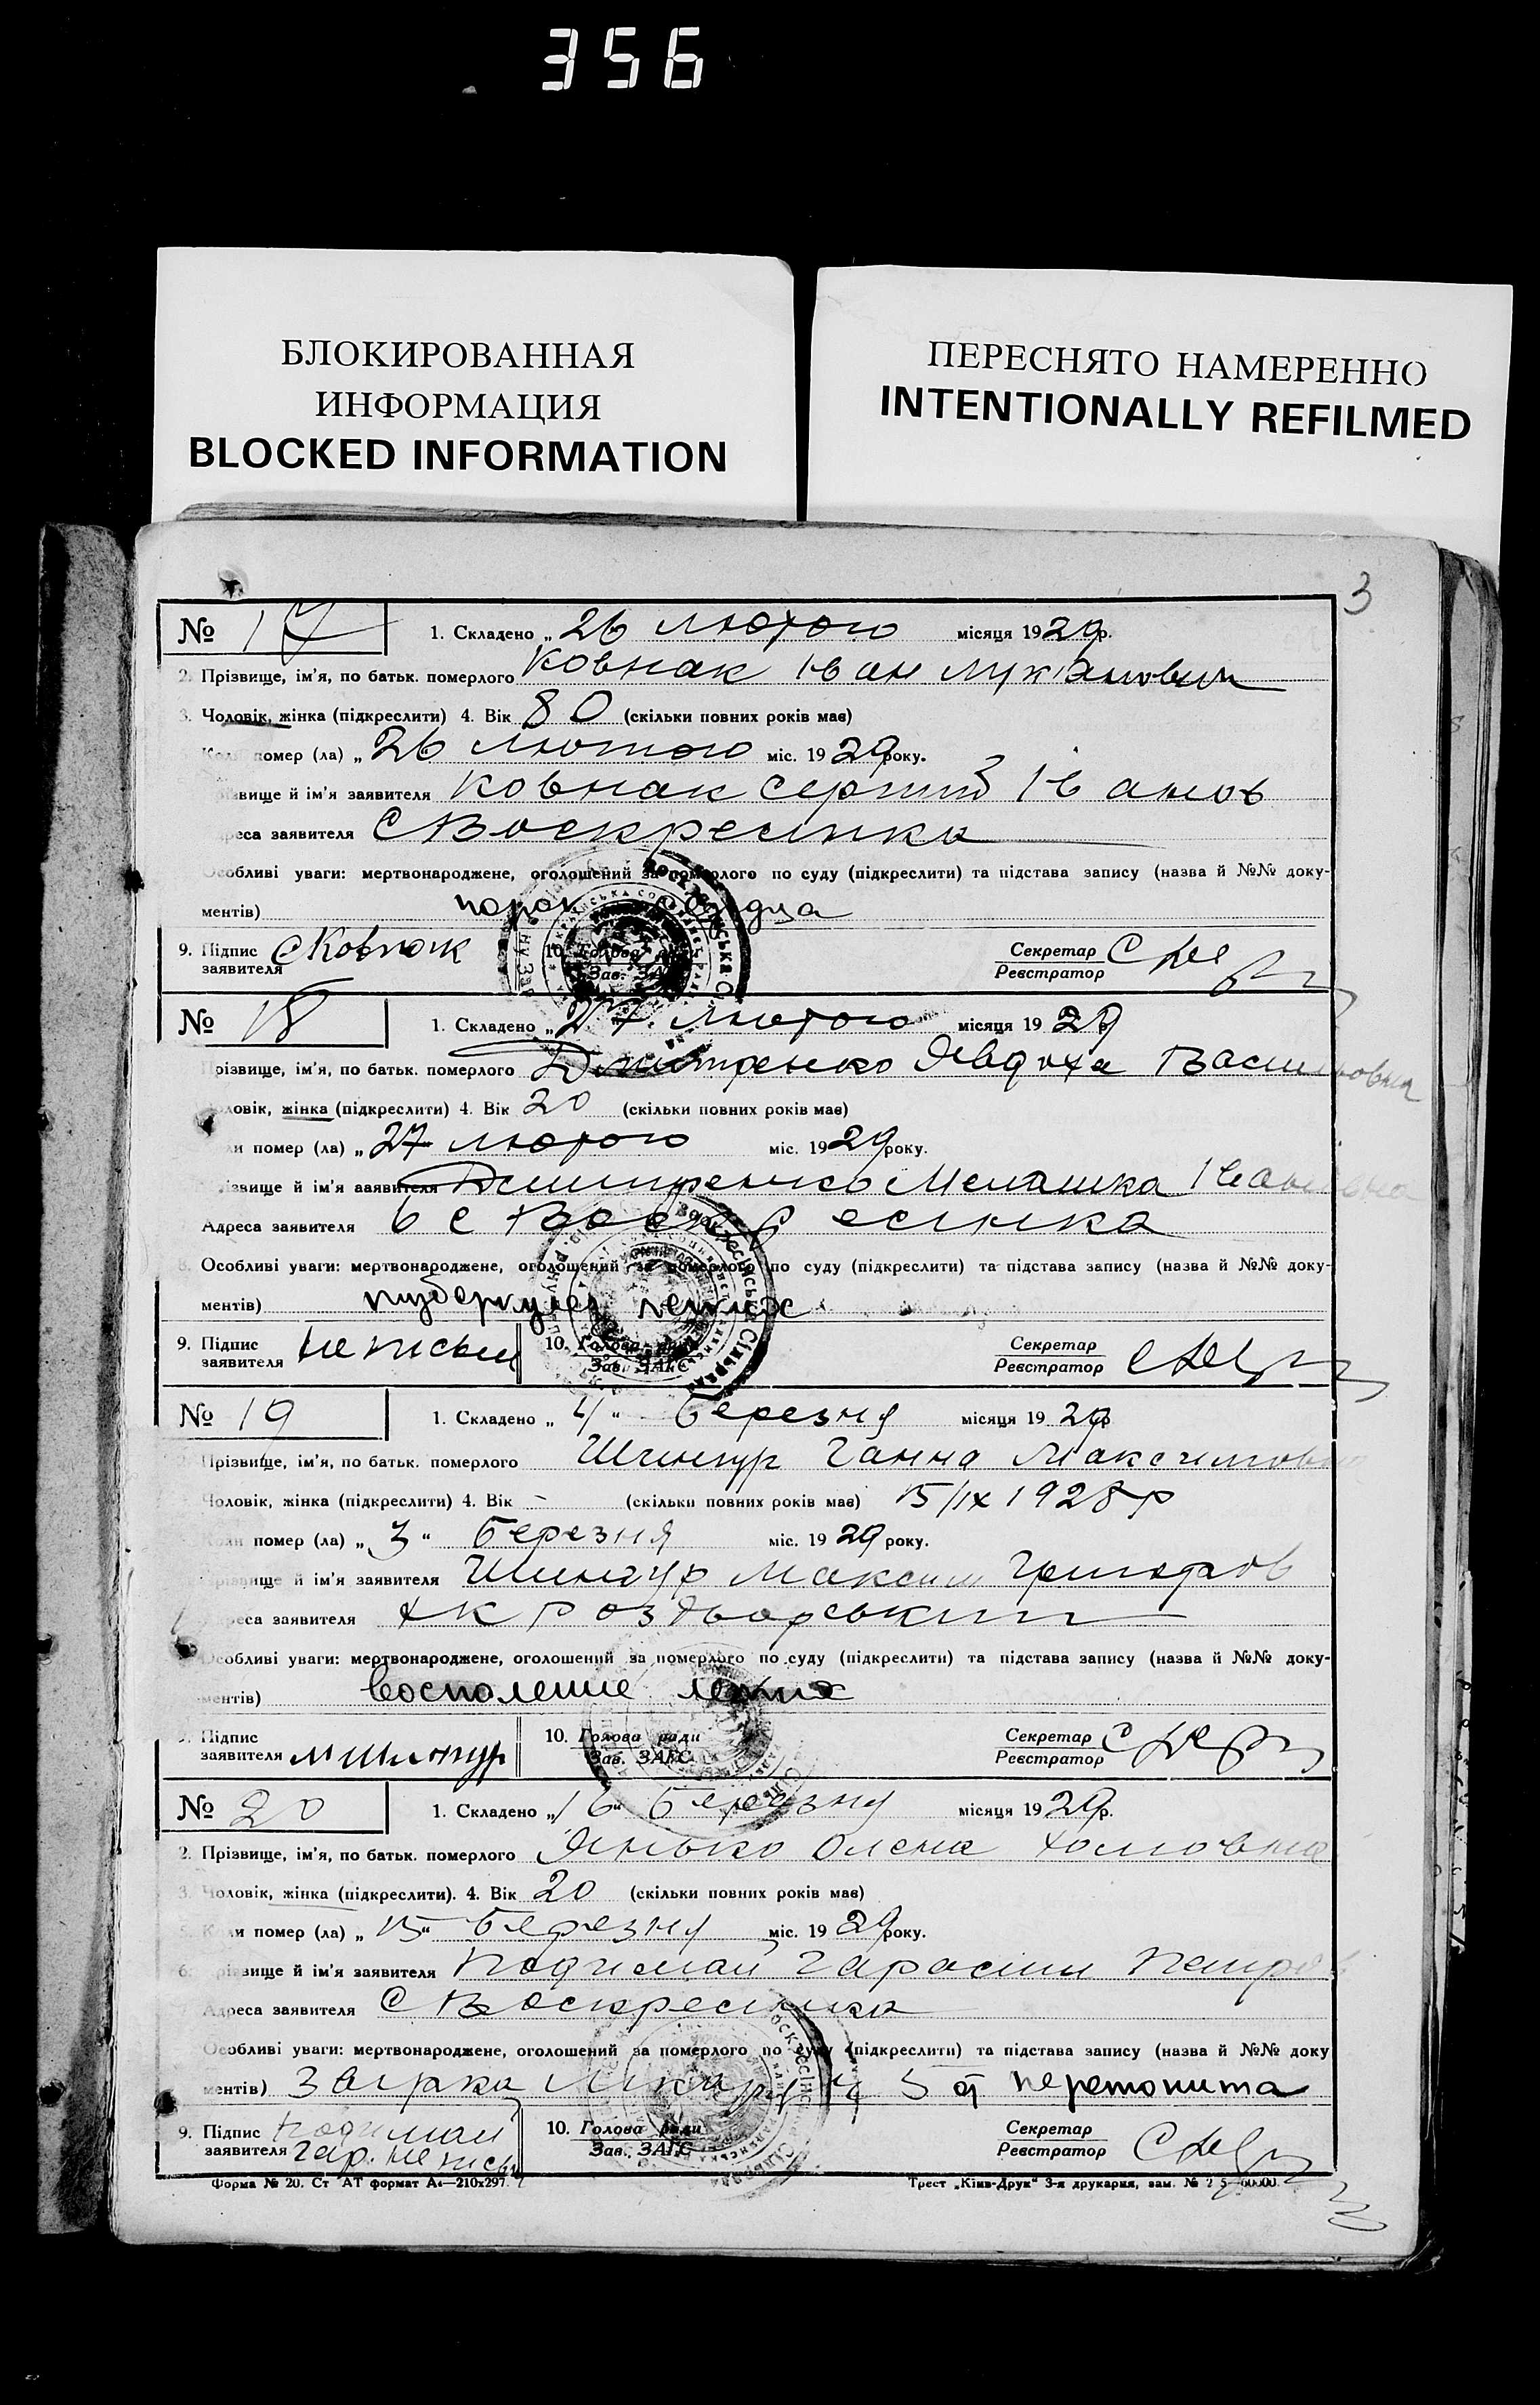 356
БЛОКИРОВАННАЯ
ИНФОРМАЦИЯ
BLOCKED INFORMATION
ПЕРЕСНЯТО НАМЕРЕННО
INTENTIONALLY REFILMED
3
№ 17 1. Складено „ 26 лютого місяця 1929р.
2. Прізвище, ім'я, по батьк. померлого Ковнак Іван
3. Чоловік, жінка (підкреслити) 4. Вік 80 (скільки повних років має)
помер (ла) „ 26 лютого міс. 1929 року.
ім'я заявителя Ковнак Сергий Іванов
адреса заявителя с Воскресенка
Особливі уваги: мертвонароджене, оголошений за померлого по суду (підкреслити) та підстава запису (назва й №№ доку-
ментів) порок сердца
9. Підпис заявителя С Ковнак 10. Голова ради Зав. ЗАГС Секретар Реєстратор
№ 18 1. Складено „ 27 лютого місяця 1929
Прізвище, ім'я, по батьк. померлого Дмитренко Явдоха
Чоловік, жінка (підкреслити) 4. Вік 20 (скільки повних років має)
помер (ла) „ 27 лютого міс. 1929 року.
Прізвище й ім'я заявителя Дмитренко Мелашка
Адреса заявителя с Воскресінка
8. Особливі уваги: мертвонароджене, оголошений за померлого по суду (підкреслити) та підстава запису (назва й №№ доку-
ментів) туберкулез легких
9. Підпис заявителя не письм 10. Голова ради Зав. ЗАГС Секретар Реєстратор
№ 19 1. Складено „ 4 " березня місяця 1929
Прізвище, ім'я, по батьк. померлого Ганна Максимовна
Чоловік, жінка (підкреслити) 4. Вік - (скільки повних років має) 15/IX 1928 р
Коли помер (ла) „ 3 " березня міс. 1929 року.
Прізвище й ім'я заявителя Максим Григоров
Адреса заявителя
Особливі уваги: мертвонароджене, оголошений за померлого по суду (підкреслити) та підстава запису (назва й №№ доку-
ментів) восполение легких
9. Підпис заявителя 10. Голова ради Зав. ЗАГС Секретар Реєстратор
№ 20 1. Складено „ 16 " березня місяця 1929р.
2. Прізвище, ім'я, по батьк. померлого Янько Олена
3. Чоловік, жінка (підкреслити). 4. Вік 20 (скільки повних років має)
5. Коли помер (ла) „ 15 " березня міс. 1929 року.
6. Прізвище й ім'я заявителя Подимай Гарасим
Адреса заявителя с Воскресенка
Особливі уваги: мертвонароджене, оголошений за померлого по суду (підкреслити) та підстава запису (назва й №№ доку
ментів) 5 от перетонита
9. Підпис заявителя Подимай Гар. не письм 10. Голова ради Зав. ЗАГС Секретар Реєстратор
Форма № 20. Ст АТ формат А4—210х297. Трест „Київ-Друк" 3-я друкарня, зам. №